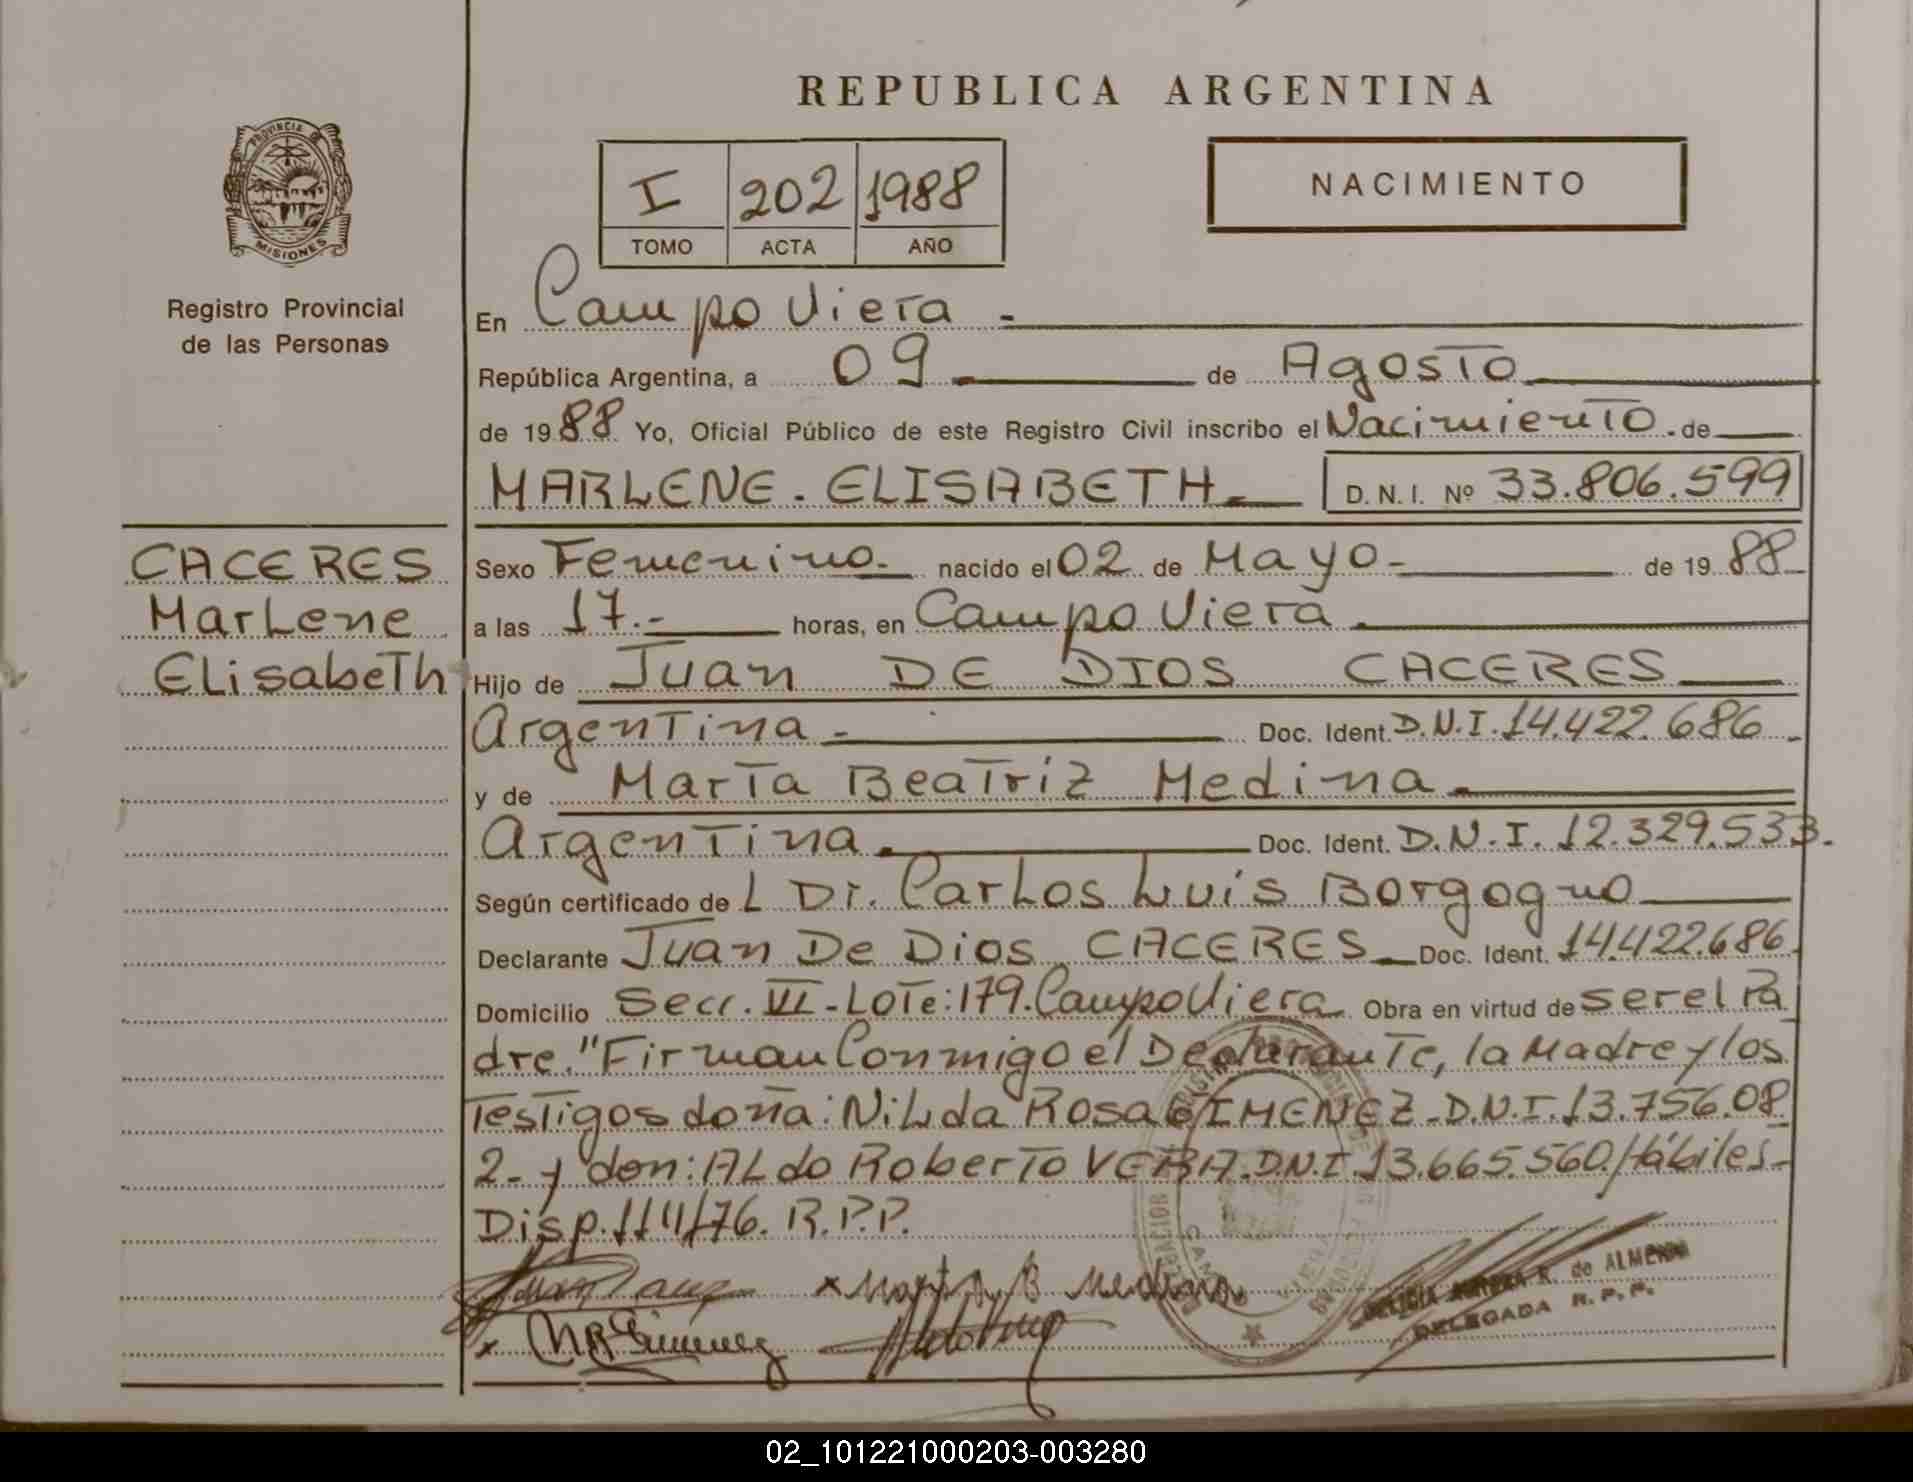 REPUBLICA ARGENTINA
PROVINCIA DE
MISIONES
Registro Provincial
de las Personas
I 202 1988
TOMO ACTA AÑO
NACIMIENTO
En Campo Viera -
República Argentina, a 09 de Agosto
de 1988 Yo, Oficial Público de este Registro Civil inscribo el Nacimiento. de
MARLENE. ELISABETH. D. N. I. Nº 33.806.599
CACERES
Marlene
Elisabeth
Sexo Femenino. nacido el 02 de Mayo- de 1988
a las 17.- horas, en Campo Viera.
Hijo de Juan DE DIOS CACERES
Argentina - Doc. Ident. D.N.I. 14.422.686
y de Marta Beatriz Medina.
Argentina. Doc. Ident. D.N.I. 12.329.533.
Según certificado de L Dr. Carlos Luis Borgogno
Declarante Juan De Dios CACERES Doc. Ident. 14.422.686.
Domicilio Secc. VI - Lote: 179. Campo Viera Obra en virtud de ser el Pa
dre." Firman Conmigo el Declarante, la Madre y los
Testigos doña: Nilda Rosa GIMENEZ - D.N.I. 13.756.08
2.- y don: ALdo Roberto VERA. D.N.I. 13.665.560. Hábiles-
Disp. 114/76. R.P.P.
x Marta B Medina
x NR Gimenez
R. de ALMEIDA
DELEGADA R. P. P.
02_101221000203-003280